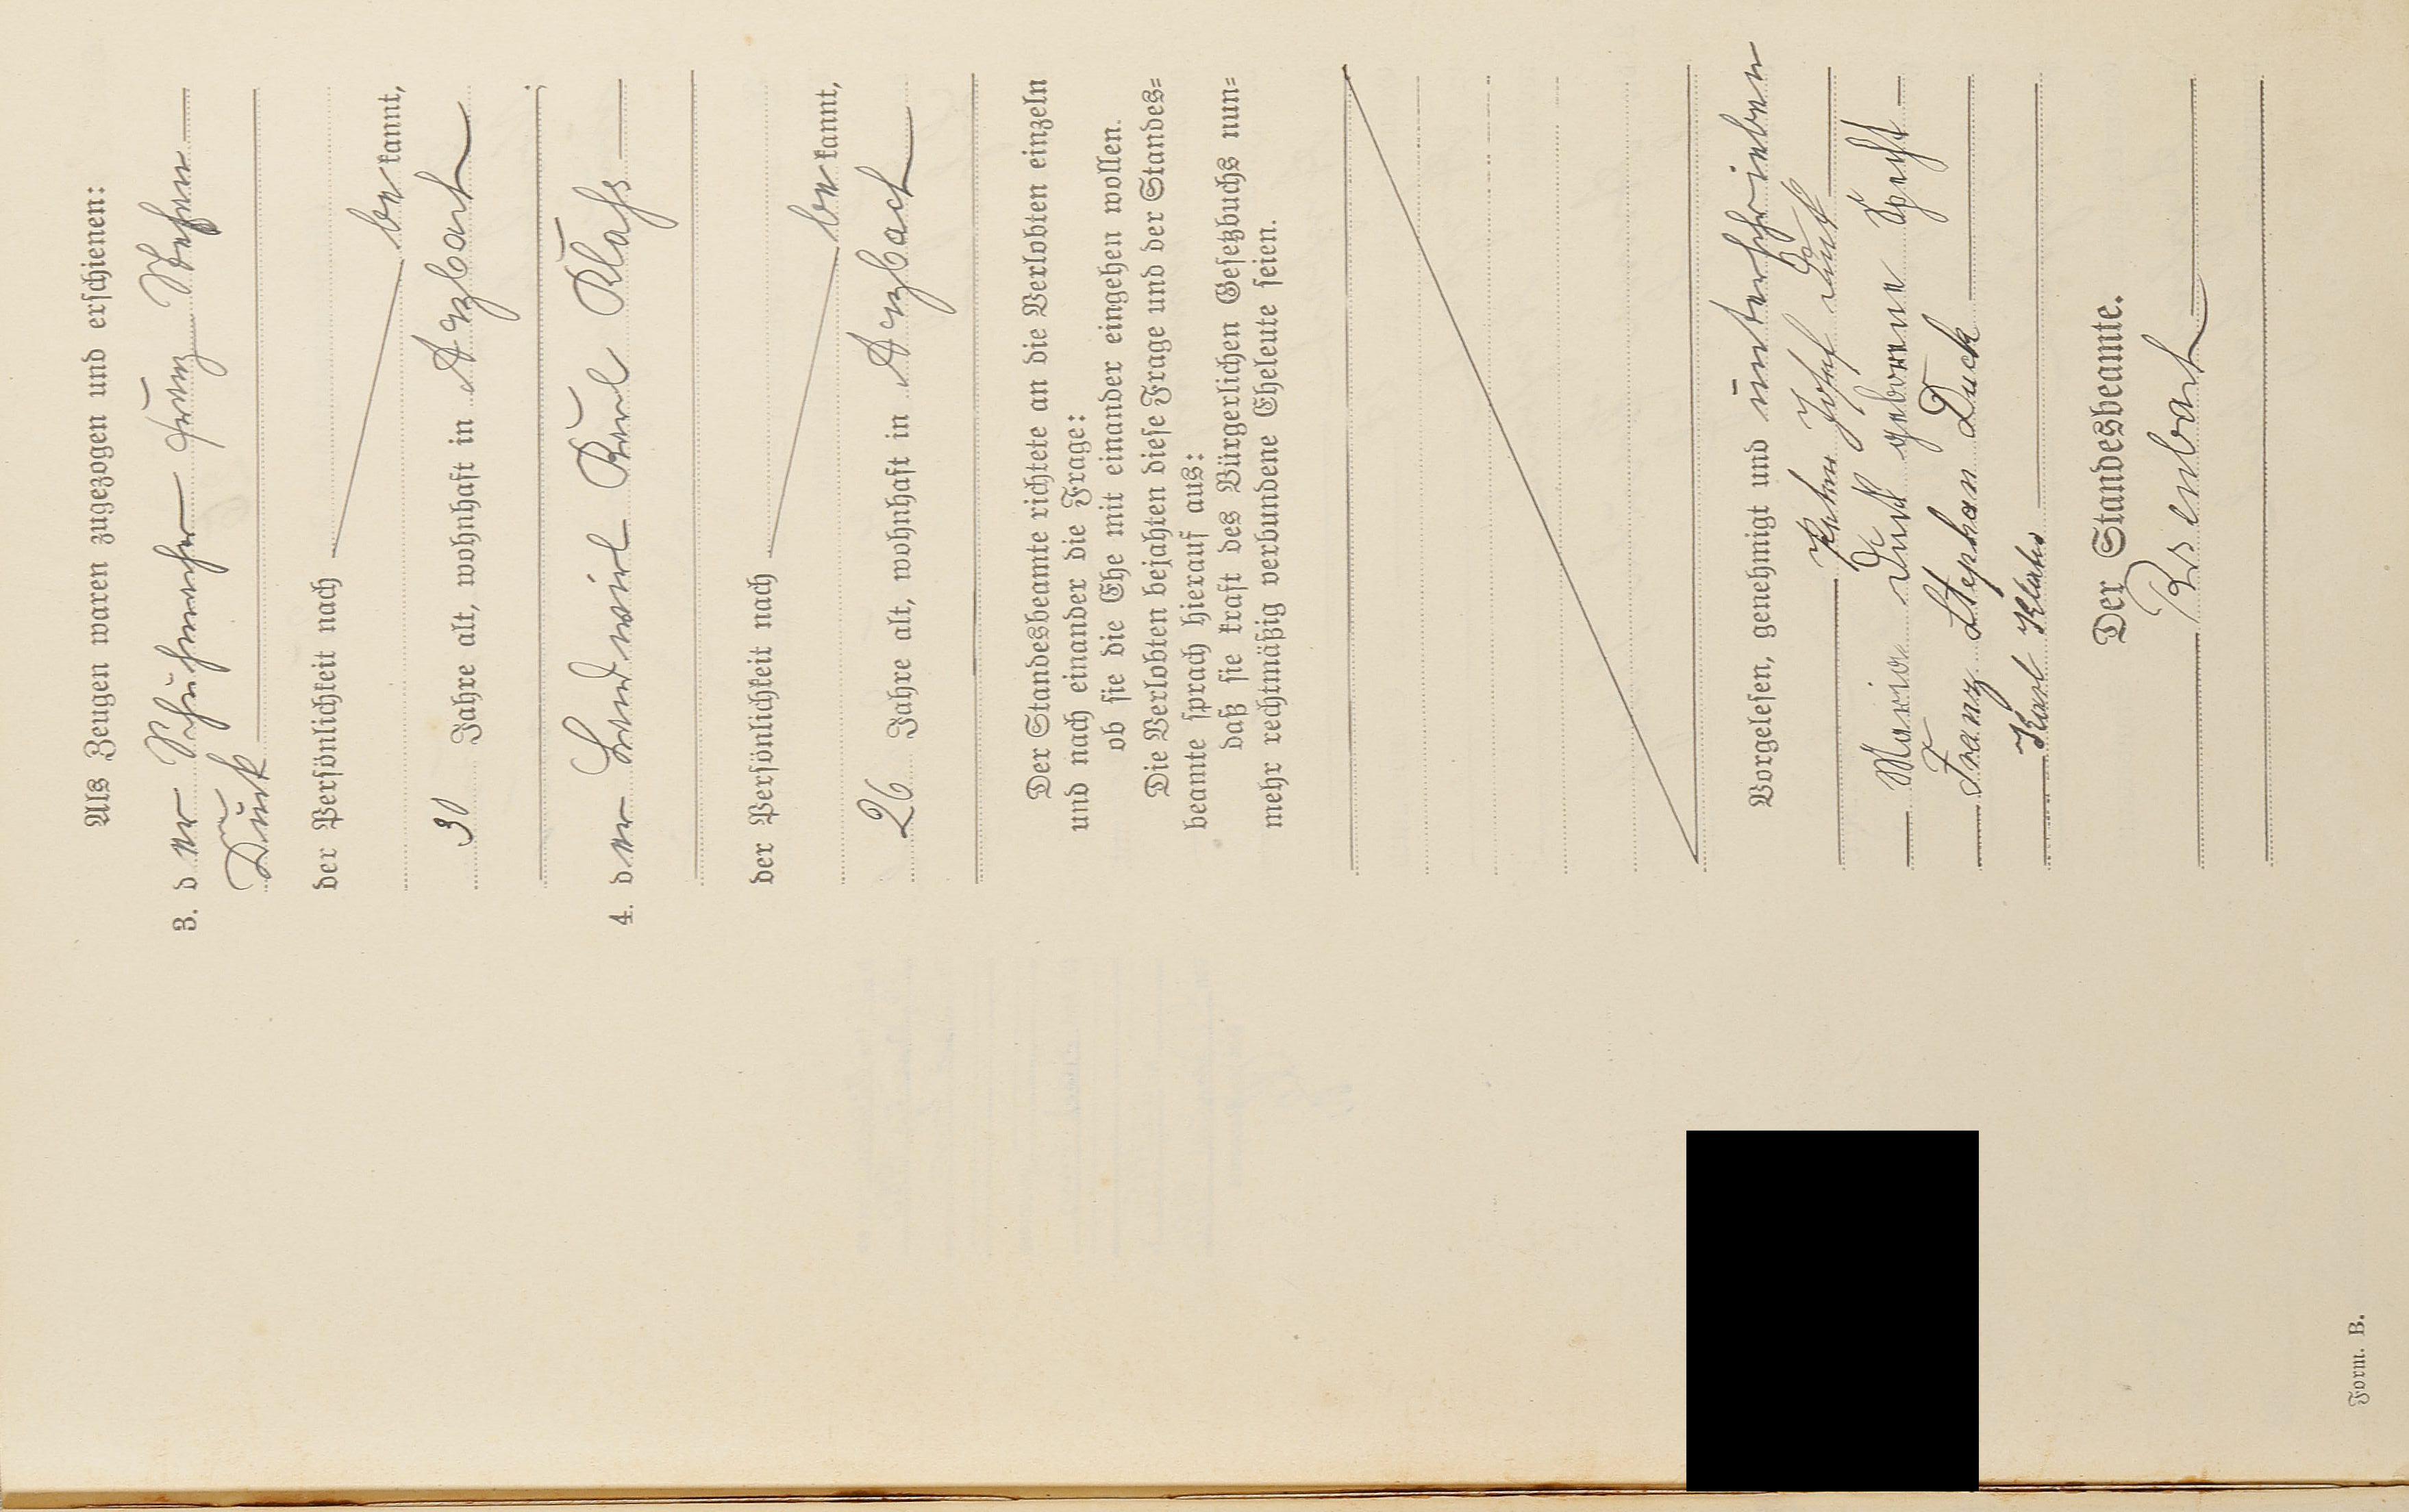 Als Zeugen waren zugezogen und erschienen:
3. der Schuhmacher Franz Stefan
Duck
der Persönlichkeit nach
be kannt,
30 Jahre alt, wohnhaft in Arzbach
;
4. der Landwirt Karl Klahs
der Persönlichkeit nach
be kannt,
26 Jahre alt, wohnhaft in Arzbach
Der Standesbeamte richtete an die Verlobten einzeln
und nach einander die Frage:
ob sie die Ehe mit einander eingehen wollen.
Die Verlobten bejahten diese Frage und der Standes=
beamte sprach hierauf aus:
daß sie kraft des Bürgerlichen Gesetzbuchs nun=
mehr rechtmäßig verbundene Eheleute seien.
Vorgelesen, genehmigt und unterschrieben
Josef Duck
Maria Duck geborene Specht
Franz Stephan Duck
Karl Klahs
Der Standesbeamte.
Form. B.